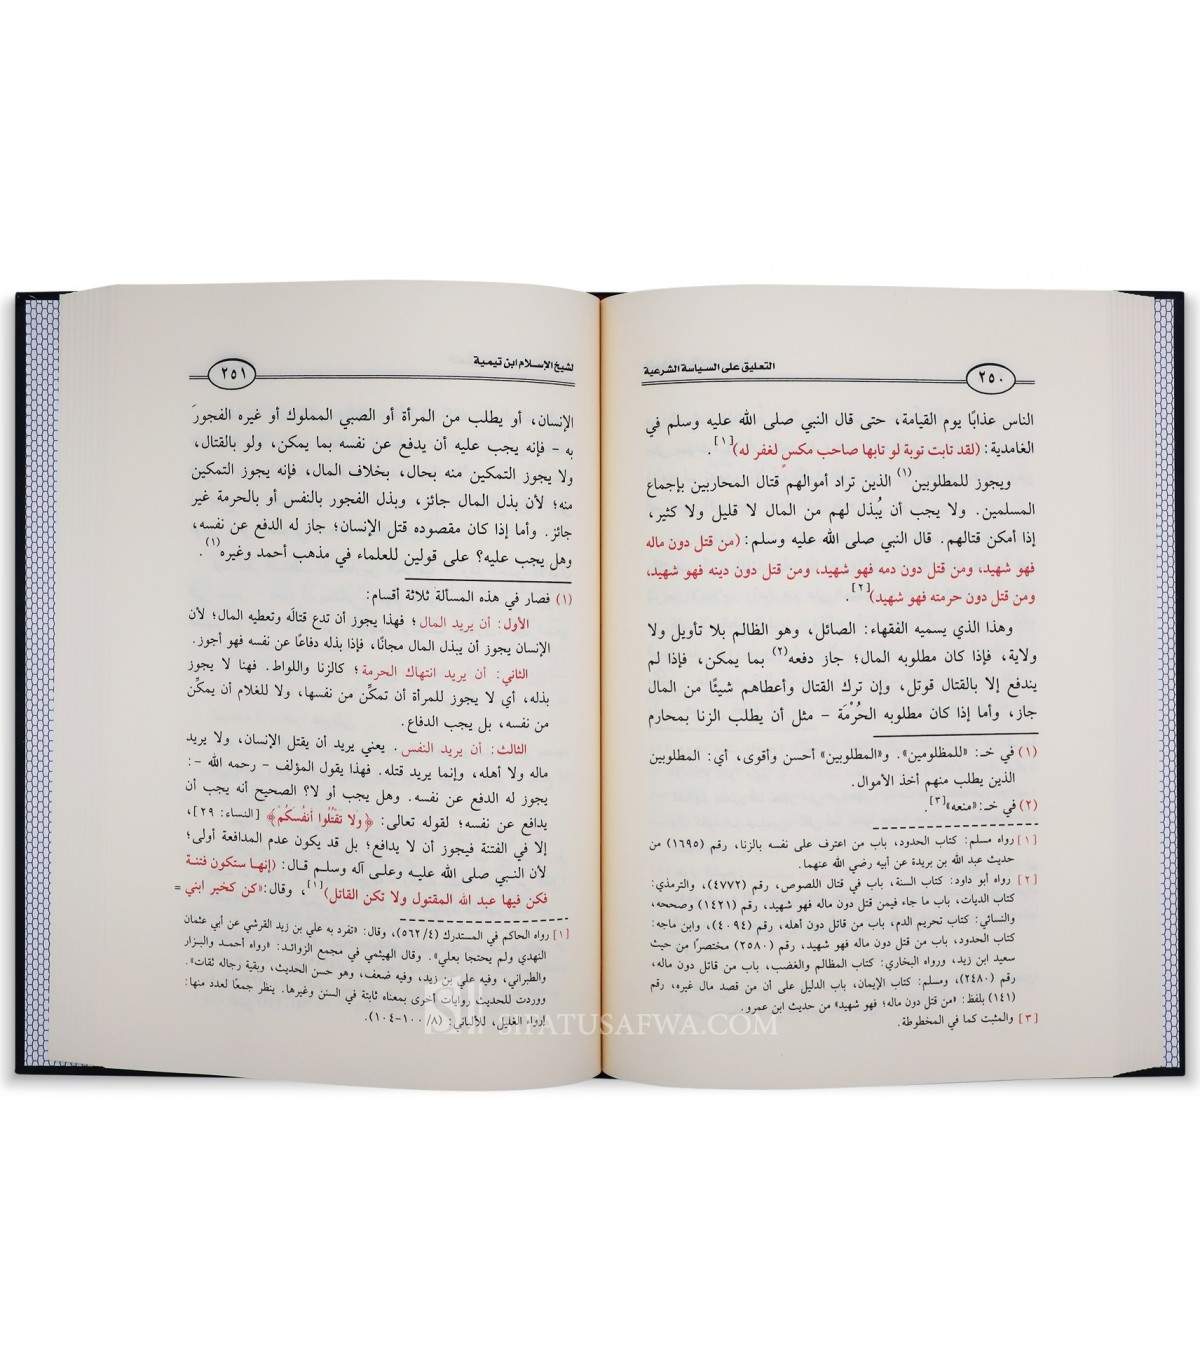 التعليق على السياسة الشرعية
٢٥٠
الناس عذابًا يوم القيامة، حتى قال النبي صلى الله عليه وسلم في
الغامدية: (لقد تابت توبة لو تابها صاحب مكسٍ لغفر له)[١].
ويجوز للمطلوبين(١) الذين تراد أموالهم قتال المحاربين بإجماع
المسلمين. ولا يجب أن يُبذل لهم من المال لا قليل ولا كثير،
إذا أمكن قتالهم. قال النبي صلى الله عليه وسلم: (من قتل دون ماله
فهو شهيد، ومن قتل دون دمه فهو شهيد، ومن قتل دون دينه فهو شهيد،
ومن قتل دون حرمته فهو شهيد)[٢].
وهذا الذي يسميه الفقهاء: الصائل، وهو الظالم بلا تأويل ولا
ولاية، فإذا كان مطلوبه المال؛ جاز دفعه(٢) بما يمكن، فإذا لم
يندفع إلا بالقتال قوتل، وإن ترك القتال وأعطاهم شيئًا من المال
جاز، وأما إذا كان مطلوبه الحُرْمَة - مثل أن يطلب الزنا بمحارم
(١) في خـ: «للمظلومين». و«المطلوبين» أحسن وأقوى، أي: المطلوبين
الذين يطلب منهم أخذ الأموال.
(٢) في خـ: «منعه»[٣].
[١] رواه مسلم: كتاب الحدود، باب من اعترف على نفسه بالزنا، رقم (١٦٩٥) من
حديث عبد الله بن بريدة عن أبيه رضي الله عنهما.
[٢] رواه أبو داود: كتاب السنة، باب في قتال اللصوص، رقم (٤٧٧٢)، والترمذي:
كتاب الديات، باب ما جاء فيمن قتل دون ماله فهو شهيد، رقم (١٤٢١) وصححه،
والنسائي: كتاب تحريم الدم، باب من قاتل دون أهله، رقم (٤٠٩٤)، وابن ماجه:
كتاب الحدود، باب من قتل دون ماله فهو شهيد، رقم (٢٥٨٠) مختصرًا من حيث
سعيد ابن زيد، ورواه البخاري: كتاب المظالم والغضب، باب من قاتل دون ماله،
رقم (٢٤٨٠)، ومسلم: كتاب الإيمان، باب الدليل على أن من قصد مال غيره، رقم
(١٤١) بلفظ: «من قتل دون ماله؛ فهو شهيد» من حديث ابن عمرو.
[٣] والمثبت كما في المخطوطة.
لشيخ الإسلام ابن تيمية
٢٥١
الإنسان، أو يطلب من المرأة أو الصبي المملوك أو غيره الفجورَ
به - فإنه يجب عليه أن يدفع عن نفسه بما يمكن، ولو بالقتال،
ولا يجوز التمكين منه بحال، بخلاف المال، فإنه يجوز التمكين
منه؛ لأن بذل المال جائز، وبذل الفجور بالنفس أو بالحرمة غير
جائز. وأما إذا كان مقصوده قتل الإنسان؛ جاز له الدفع عن نفسه،
وهل يجب عليه؟ على قولين للعلماء في مذهب أحمد وغيره(١).
(١) فصار في هذه المسألة ثلاثة أقسام:
الأول: أن يريد المال؛ فهذا يجوز أن تدع قتالَه وتعطيه المال؛ لأن
الإنسان يجوز أن يبذل المال مجانًا، فإذا بذله دفاعًا عن نفسه فهو أجوز.
الثاني: أن يريد انتهاك الحرمة؛ كالزنا واللواط. فهنا لا يجوز
بذله، أي لا يجوز للمرأة أن تمكِّن من نفسها، ولا للغلام أن يمكِّن
من نفسه، بل يجب الدفاع.
الثالث: أن يريد النفس. يعني يريد أن يقتل الإنسان، ولا يريد
ماله ولا أهله، وإنما يريد قتله. فهذا يقول المؤلف - رحمه الله -:
يجوز له الدفع عن نفسه. وهل يجب أو لا؟ الصحيح أنه يجب أن
يدافع عن نفسه؛ لقوله تعالى: ﴿وَلَا تَقْتُلُوا أَنفُسَكُمْ﴾ [النساء: ٢٩]،
إلا في الفتنة فيجوز أن لا يدافع؛ بل قد يكون عدم المدافعة أولى؛
لأن النبي صلى الله عليه وعلى آله وسلم قال: (إنها ستكون فتنة
فكن فيها عبد الله المقتول ولا تكن القاتل)[١]، وقال: «كن كخير ابني =
[١] رواه الحاكم في المستدرك (٥٦٢/٤)، وقال: «تفرد به علي بن زيد القرشي عن أبي عثمان
النهدي ولم يحتجا بعلي». وقال الهيثمي في مجمع الزوائد: «رواه أحمد والبزار
والطبراني، وفيه علي بن زيد، وفيه ضعف، وهو حسن الحديث، وبقية رجاله ثقات».
ووردت للحديث روايات أخرى بمعناه ثابتة في السنن وغيرها. ينظر جمعًا لعدد منها:
إرواء الغليل، للألباني: (٨/ ١٠٠-١٠٤).
SIFATUSAFWA.COM